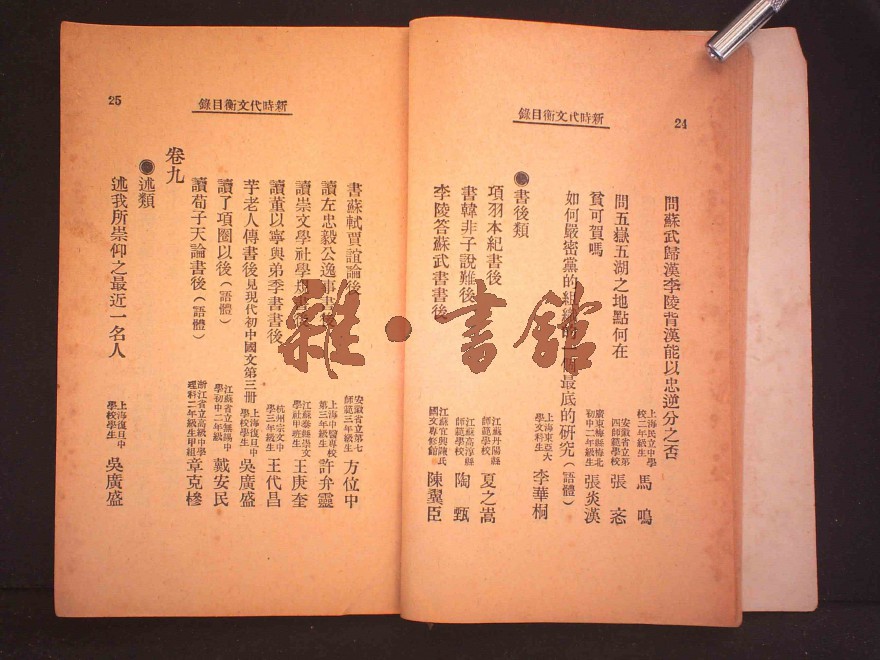 24
新時代文衡目錄
問蘇武歸漢李陵背漢能以忠逆分之否
上海民立中學校二年級生 馬鳴
問五嶽五湖之地點何在
安徽省立第四師範學校 張忞
貧可賀嗎
廣東梅縣梅北初中二年級生 張炎漢
如何嚴密黨的組織的一個最底的研究(語體)
上海東亞大學文科生 李華桐
●書後類
項羽本紀書後
江蘇丹陽縣師範學校 夏之嵩
書韓非子說難後
江蘇高淳縣師範學校 陶甄
李陵答蘇武書書後
江蘇宜興陳氏國文專修館 陳翼臣
25
新時代文衡目錄
書蘇軾賈誼論後
安徽省立第七師範三年級生 方位中
讀左忠毅公逸事書後
上海中醫專校第三年級生 許弁靈
讀崇文學社學規書後
江蘇泰縣崇文學社甲班生 王庚奎
讀董以寧與弟季書書後
杭州宗文中學三年級生 王代昌
芋老人傳書後見現代初中國文第三册
上海復旦中學校學生 吳廣盛
讀了項圈以後(語體)
江蘇省立無錫中學初中二年級 戴安民
讀荀子天論書後(語體)
浙江省立高級中學理科二年級生甲組 章克槮
卷九
●述類
述我所崇仰之最近一名人
上海復旦中學校學生 吳廣盛
雜·書館